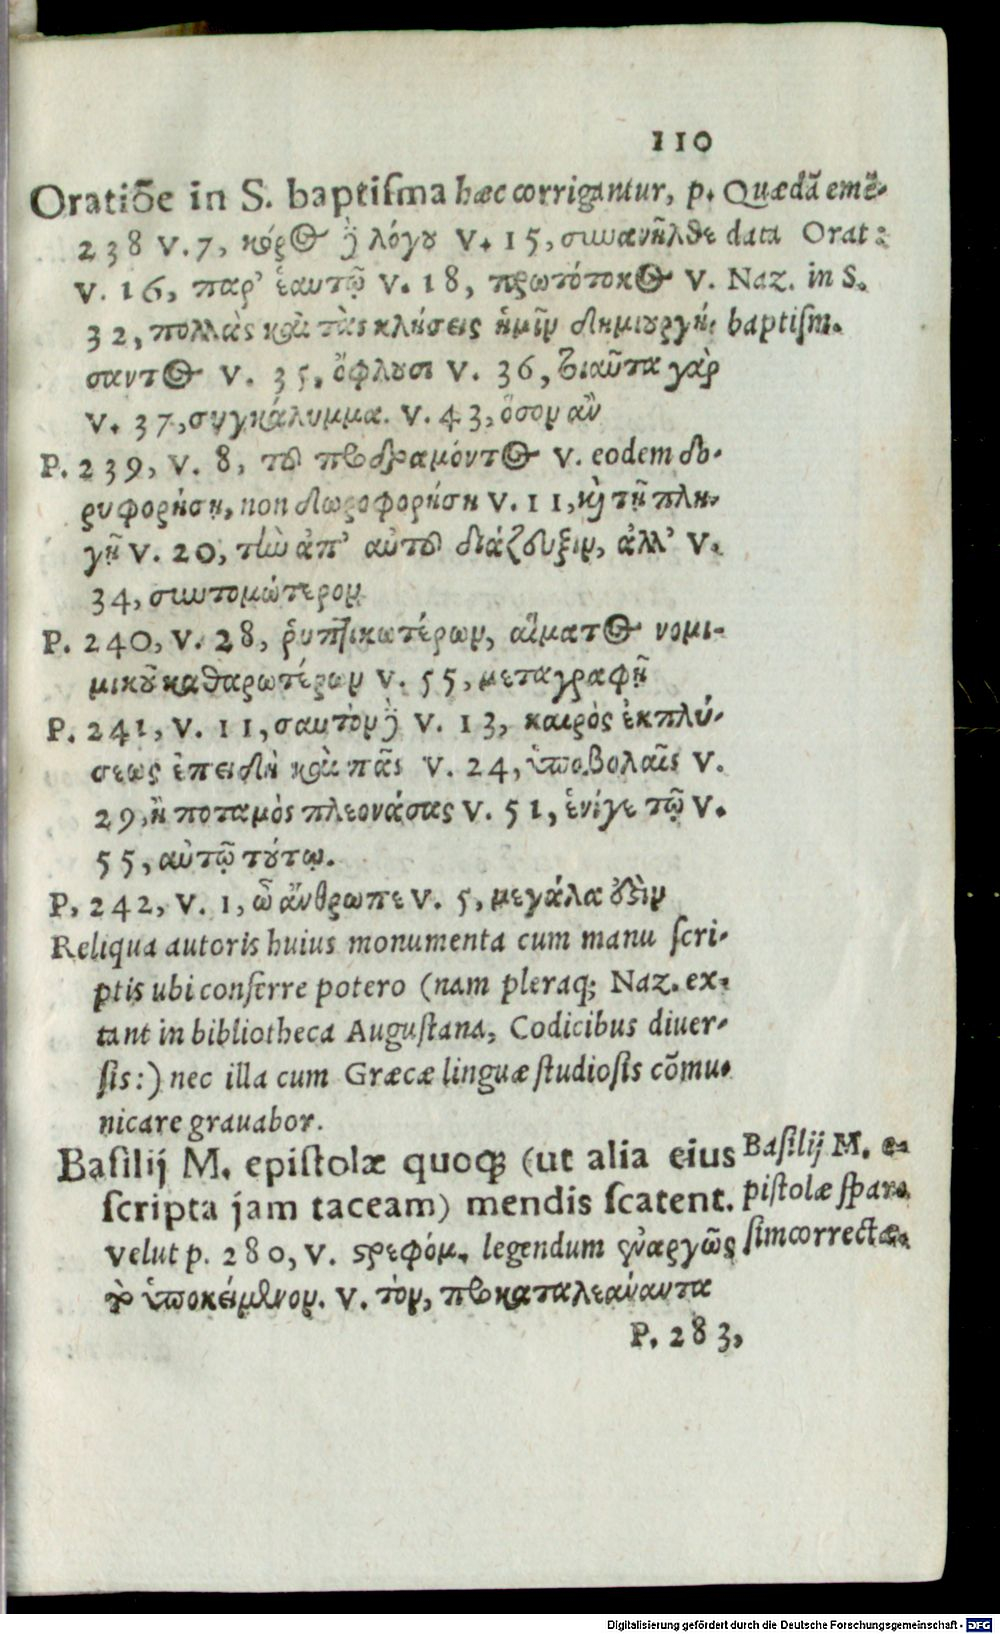 110
Oratiōe in S. baptiſma hæc corrigantur, p.
238 V. 7, κόρος δὲ λόγου V. 15, συνανῆλθε
V. 16, παρ' ἑαυτῷ V. 18, πρωτότοκος V.
32, πολλὰς καὶ τὰς κλήσεις ἡμῖν δημιουργή-
σαντος V. 35, ὄφλουσι V. 36, τοιαῦτα γὰρ
V. 37, συγκάλυμμα. V. 43, ὅσον ἂν
P. 239, V. 8, τοῦ προδραμόντος V. eodem δο-
ρυφορήσῃ, non δωροφορήσῃ V. 11, καὶ τῇ πλη-
γῇ V. 20, τὴν ἀπ' αὐτοῦ διάζευξιν, ἀλλ' V.
34, συντομώτερον
P. 240, V. 28, ῥυπτικωτέρων, αἵματος νομι-
μικοῦ καθαρωτέρων V. 55, μεταγραφῇ
P. 241, V. 11, σαυτὸν δὲ V. 13, καιρὸς ἐκπλύ-
σεως ἐπειδὴ καὶ πᾶς V. 24, ὑποβολαῖς V.
29, ἢ ποταμὸς πλεονάσας V. 51, ἑνίγε τῷ V.
55, αὐτῷ τούτῳ.
P, 242, V. 1, ὦ ἄνθρωπε V. 5, μεγάλα οὐδὲν
Reliqua autoris huius monumenta cum manu ſcri-
ptis ubi conferre potero (nam pleraq; Naz. ex-
tant in bibliotheca Auguſtana, Codicibus diuer-
ſis:) nec illa cum Græcæ linguæ ſtudioſis cōmu-
nicare grauabor.
Baſilij M. epiſtolæ quoq; (ut alia eius
ſcripta jam taceam) mendis ſcatent.
velut p. 280, V. στρεφόμ. legendum ἐναργῶς
τὸ ὑποκείμενον. V. τὸν, προκαταλεάναντα
P. 283,
Quædā emē-
data Orat:
Naz. in S.
baptiſm.
Baſilij M. e-
piſtolæ ſpar-
ſim correctæ.
Digitalisierung gefördert durch die Deutsche Forschungsgemeinschaft - DFG